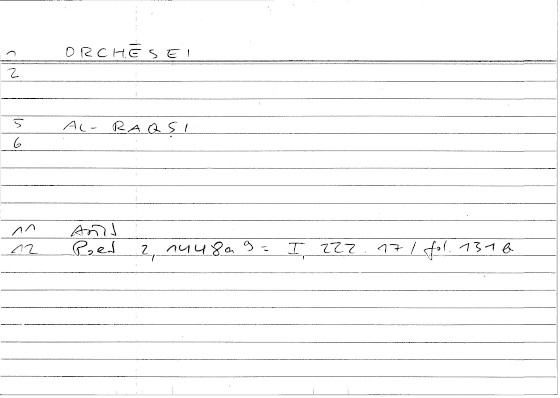 1 ORCHĒSEI
2
5 AL-RAQṢI
6
11 Arist
12 Poet 2, 1448a 9 = I, 222.17 / fol. 131b